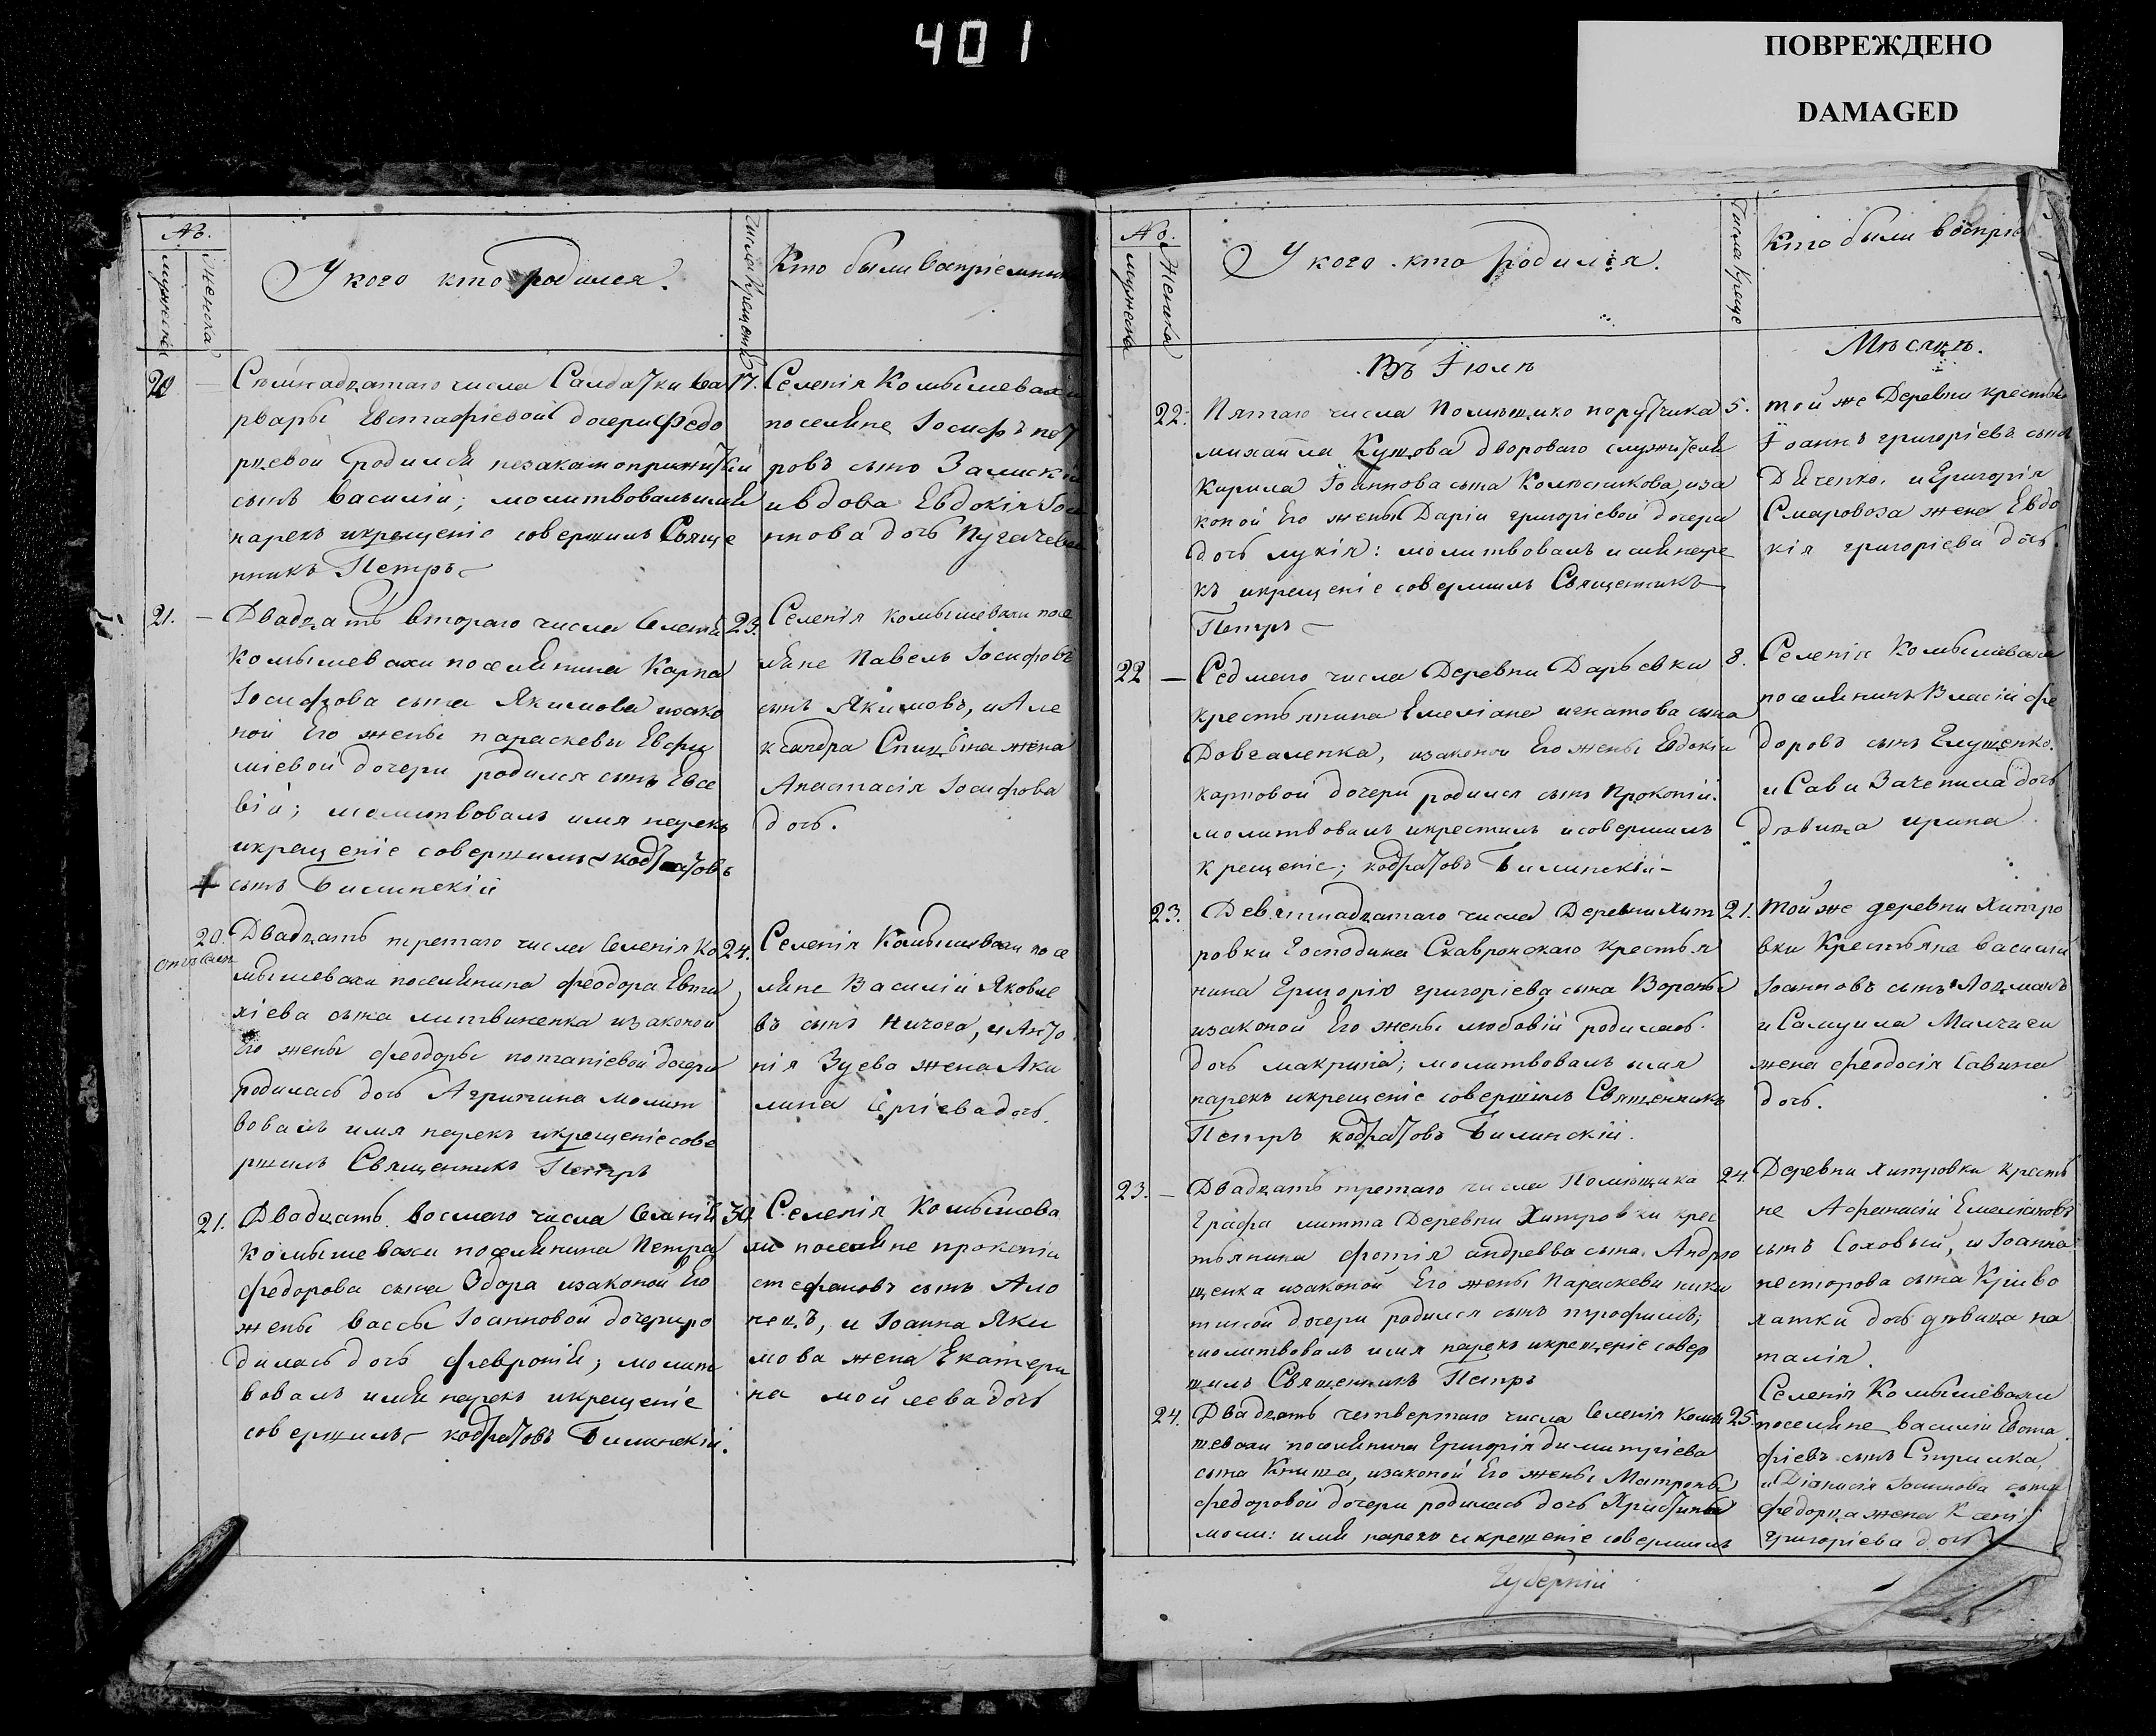 401
ПОВРЕЖДЕНО
DAMAGED
№.
мужеска
женска
У кого кто родился.
Числа Крещенія
Кто были Воспріемник
20
17.
Семнадцатаго числа Салдатки Ва
рвары Евстафіевой дочери Федо
рцевой родился незаконоприжитый
сынъ Василій; молитвовалъ имя
нарекъ и крещеніе совершилъ Свяще
нникъ Петръ
Селенія Комышевахи
поселяне Іосифъ пет
ровъ сынъ
и вдова Евдокія Іоа
ннова дочь Пугачева
21.
23.
Двадцать втораго числа Селенія
Комышевахи поселянина Карпа
Іосифова сына Якимова и зако
ной Его жены параскевы Евфи
міевой дочери родился сынъ Евсе
вій; молитвовалъ имя нарекъ
и крещеніе совершилъ кодратовъ
сынъ Билинскій
Селенія комышевахи посе
ляне Павелъ Іосифовъ
сынъ Якимовъ, и Але
ксандра Спицына жена
Анастасія Іосифова
дочь.
20.
24.
Двадцать третяго числа Селенія Ко
мышевахи поселянина феодора Евти
хіева сына литвиненка и законой
Его жены феодоры потапіевой дочери
родилась дочь Агрипина молит
вовалъ имя нарекъ и крещеніе сове
ршилъ Священникъ Петръ
Селенія Комышевахи посе
ляне Василій Яковле
въ сынъ Ничога, и Анто
нія Зуева жена Аки
лина Сергіева дочь.
21.
30
Двадцать восмаго числа Селенія
Комышевахи поселянина Петра
федорова сына Здора и законой Его
жены вассы Іоанновой дочери ро
дилась дочь февронія; молит
вовалъ имя нарекъ и крещеніе
совершилъ кодратовъ Билинскій.
Селенія Комышева
хи поселяне прокопій
стефановъ сынъ Ало
нецъ, и Іоанна Яки
мова жена Екатери
на мойсеева дочь
№.
мужеска
Женска
У кого кто родился.
Числа Креще
Кто были воспріе
Въ Іюлѣ
Мѣсяцѣ.
22.
5.
Пятаго числа Помѣщика порутчика
михаила Куцова двороваго служителя
Кирила Іоаннова сына Колесникова, и за
коной Его жены Даріи григоріевой дочери
дочь лукія: молитвовалъ и имя наре
къ и крещеніе совершилъ Священникъ
Петръ
той же Деревни крестьян
Іоаннъ григоріевъ сынъ
Дяченко, и Григорія
Смаровоза жена Евдо
кія григоріева дочь.
22
8.
Седмаго числа Деревни Дарьевки
крестьянина Емеліана игнатова сына
Довгаленка, и законой Его жены Евдокіи
карповой дочери родился сынъ Прокопій.
молитвовалъ и крестилъ и совершилъ
крещеніе; кодратовъ Билинскій
Селенія Комышеваха
поселянинъ Власій фе
доровъ сынъ Глущенко.
и Савы Зачепила дочь
дѣвица ирина.
23.
21.
Девятнадцатаго числа Деревни Хит
ровки Господина Скавронскаго крестья
нина Григорія григоріева сына Вороны
и законой Его жены любовій родилась
дочь макрина; молитвовалъ имя
нарекъ и крещеніе совершилъ Священникъ
Петръ кодратовъ Билинскій.
Той же деревни Хитро
вки Крестьяне Василій
Іоанновъ сынъ Лоцманъ
и Самуила Малчичи
жена феодосія Савина
дочь.
23.
24.
Двадцать третяго числа Помѣщика
Графа литта Деревни Хитровки крес
тьянина фотія андреева сына Андрю
щенка и законой Его жены Параскевы ники
тиной дочери родился сынъ трофимъ;
молитвовалъ имя нарекъ и крещеніе совер
шилъ Священникъ Петръ
Деревни Хитровки кресть
не Афанасій Емеліановъ
сынъ Соловый, и Іоанна
несторова сына Криво
лапки дочь дѣвица на
талія.
24.
25.
Двадцать четвертаго числа Селенія Комы
шевахи поселянина Григорія димитріева
сына Книша, и законой Его жены Матроны
федоровой дочери родилась дочь Христина
моли: имя нарекъ и крещеніе совершилъ
Селенія Комышевахи
поселяне василій Евста
фіевъ сынъ Стрилка,
и Діонисія Іосифова сына
федорца жена Ксенія
григоріева дочь
Губерній